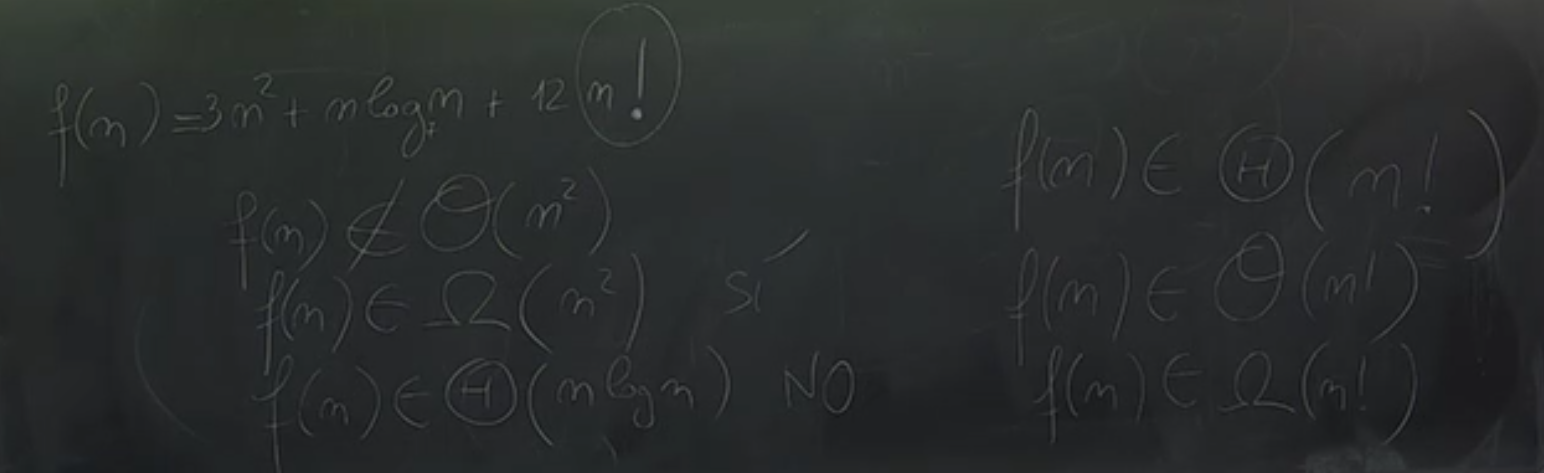 f(n) = 3n² + n log n + 12 n!
f(n) ∉ O(n²)
f(n) ∈ Ω(n²) SÍ
f(n) ∈ Θ(n log n) NO
f(n) ∈ Θ(n!)
f(n) ∈ O(n!)
f(n) ∈ Ω(n!)